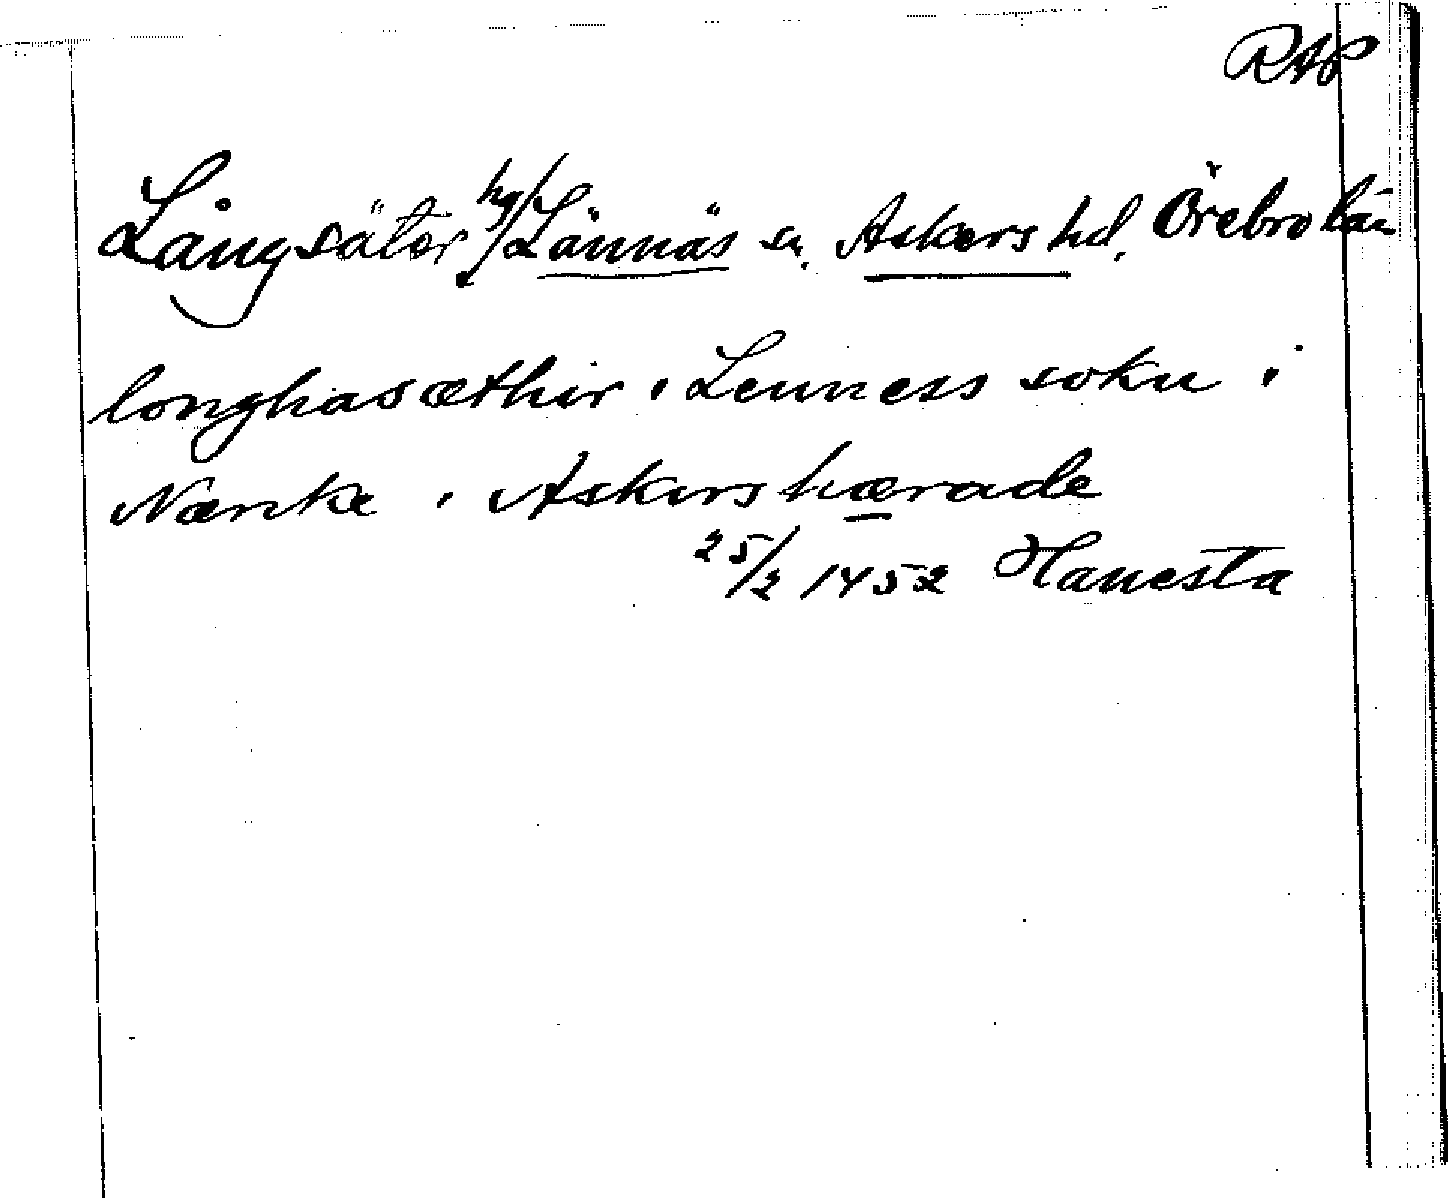 RAP
Långsäter hg/ Lännäs sn. Askers hd, Örebro län
longhasæthir i Lenness sokn i
Nærike i Askirs hærade
25/2 1452 Hanesta